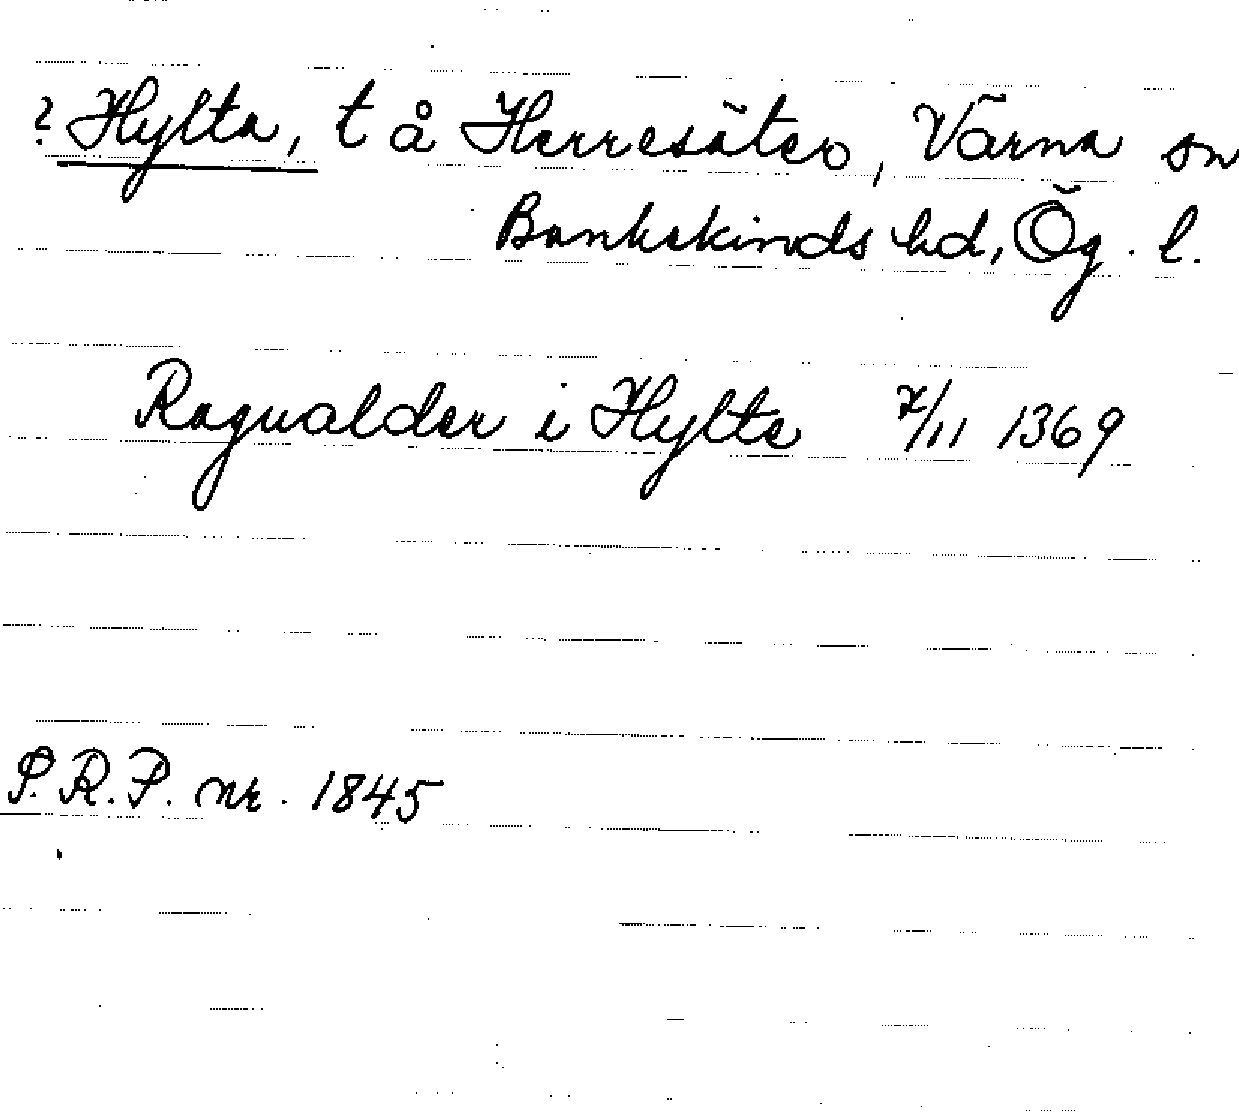 ? Hylta, t å Herresäter, Värna sn
Bankekinds hd, Ög. l.
Ragualder i Hylte 7/11 1369
P.R.P. nr. 1845